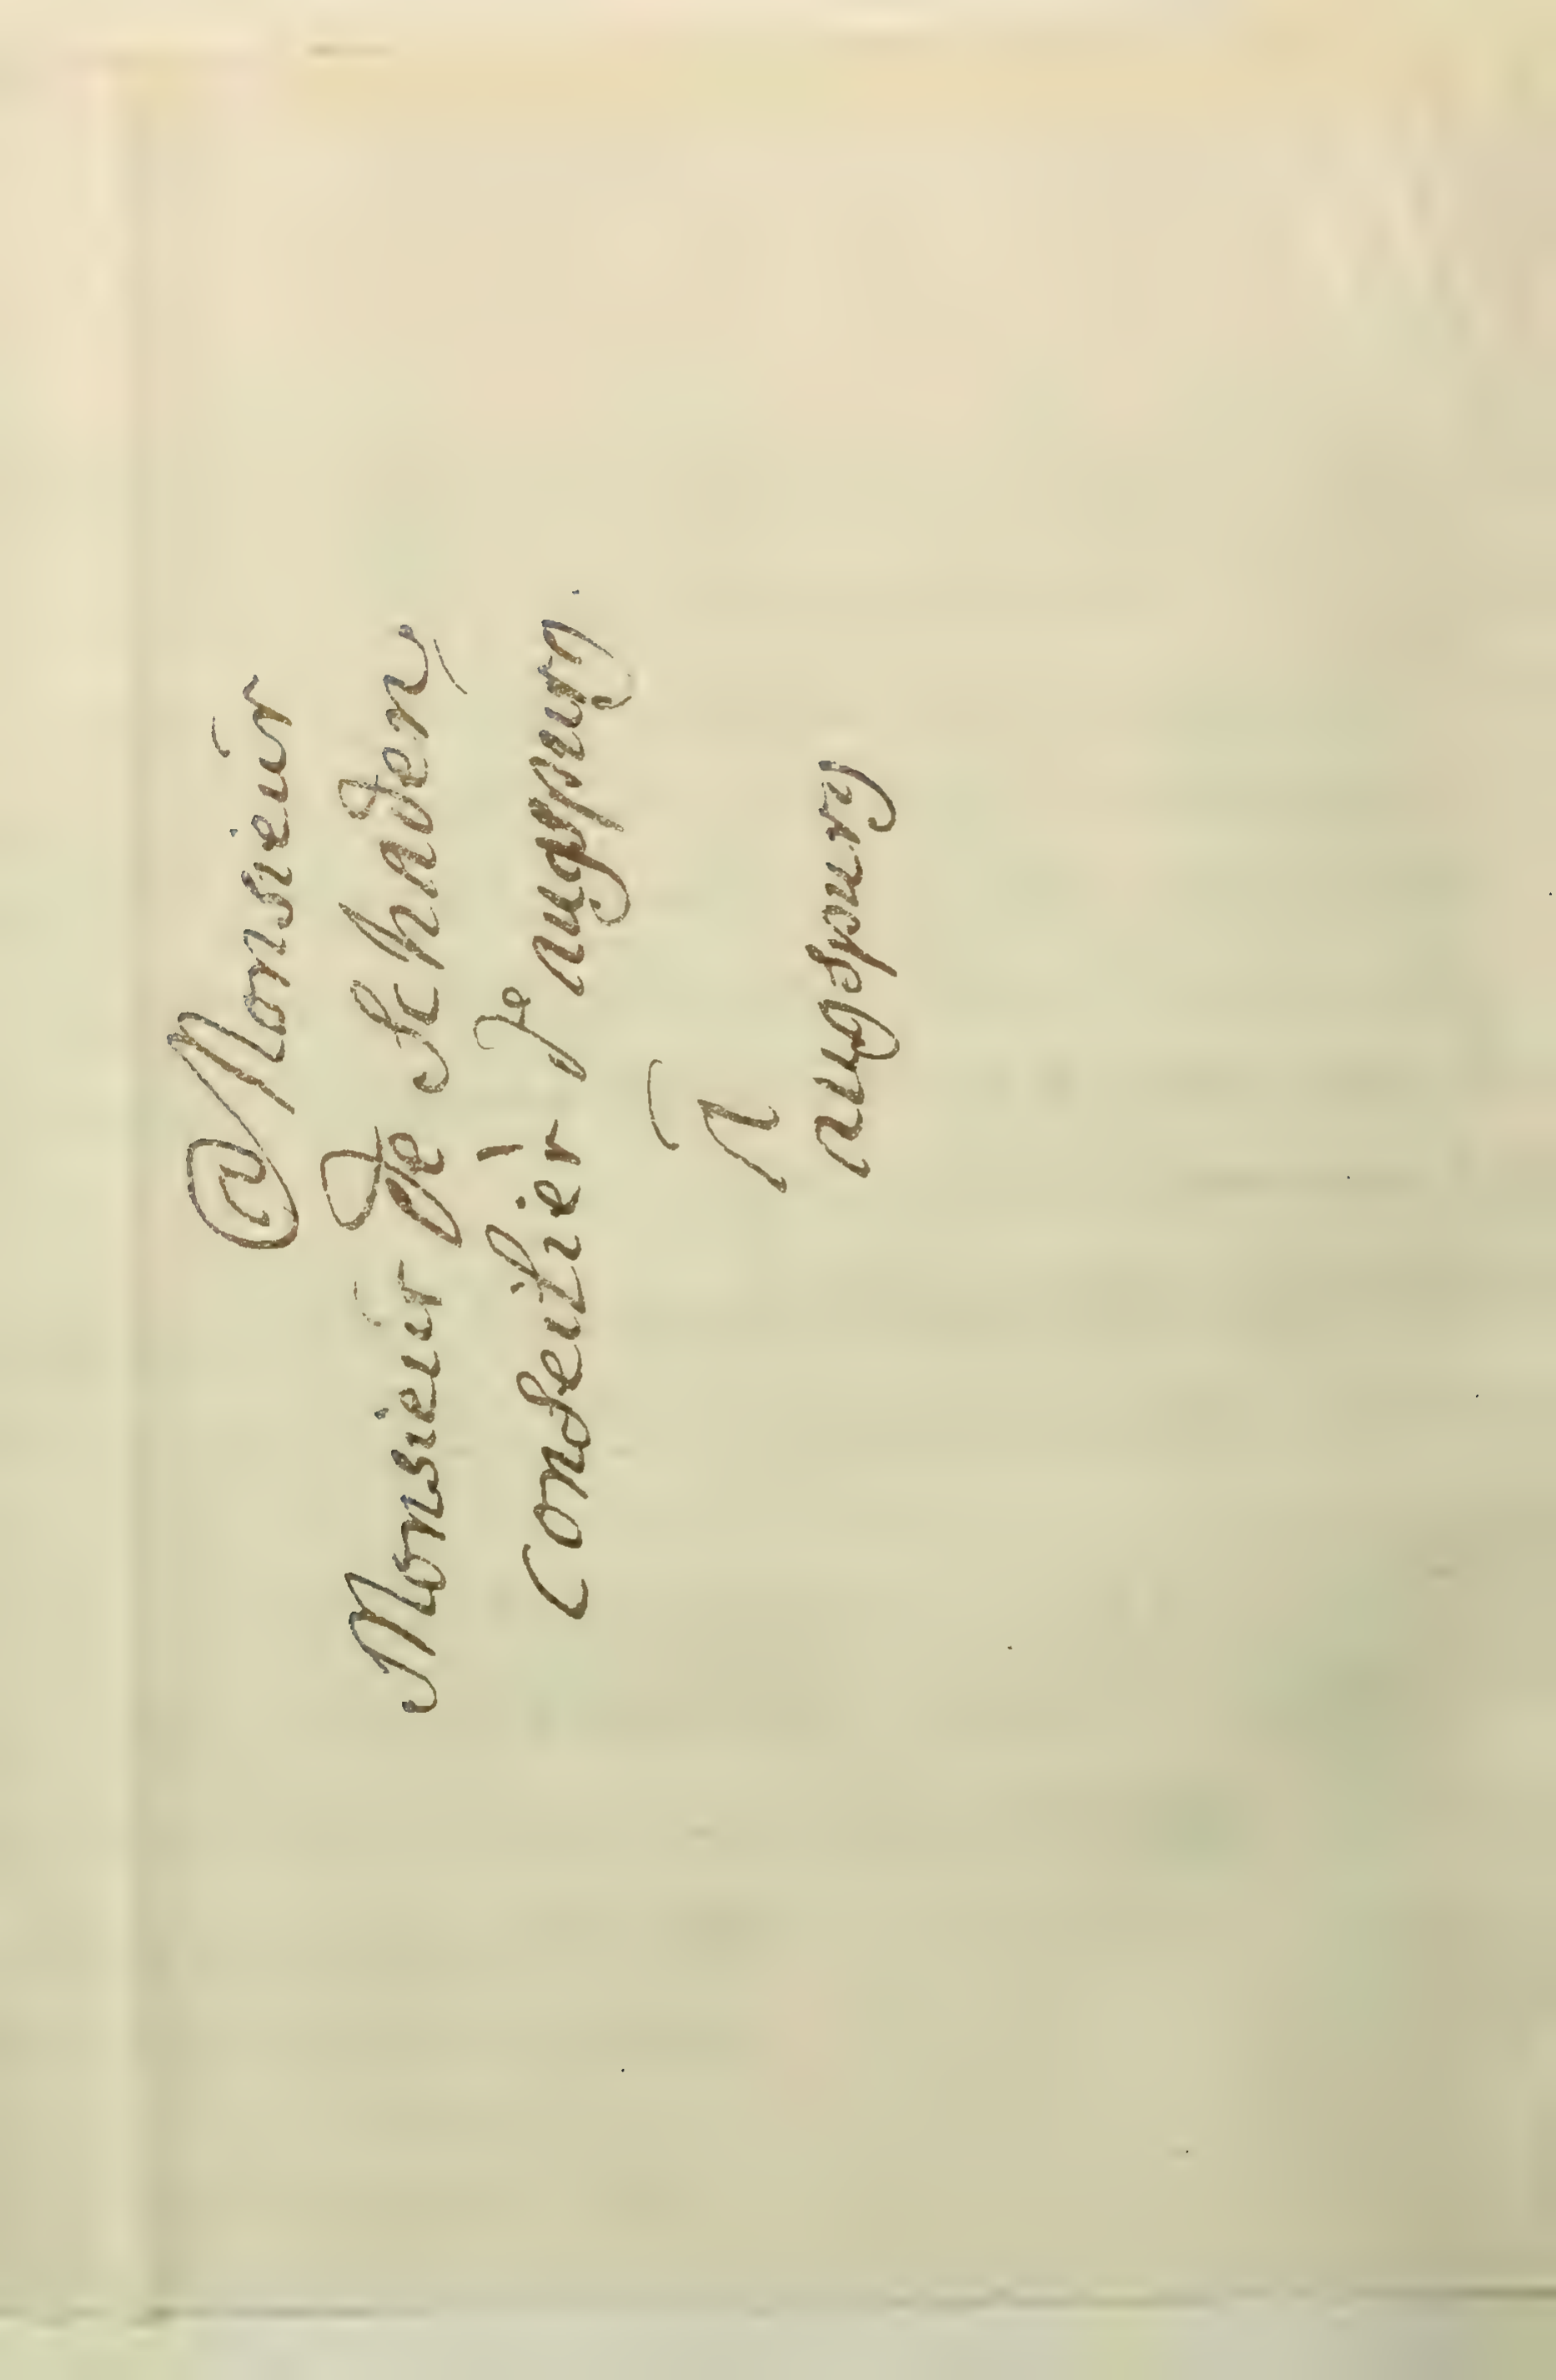 Monsieur
Monsieur de Schaden
Conseilier de augspurg.
à
augspurg